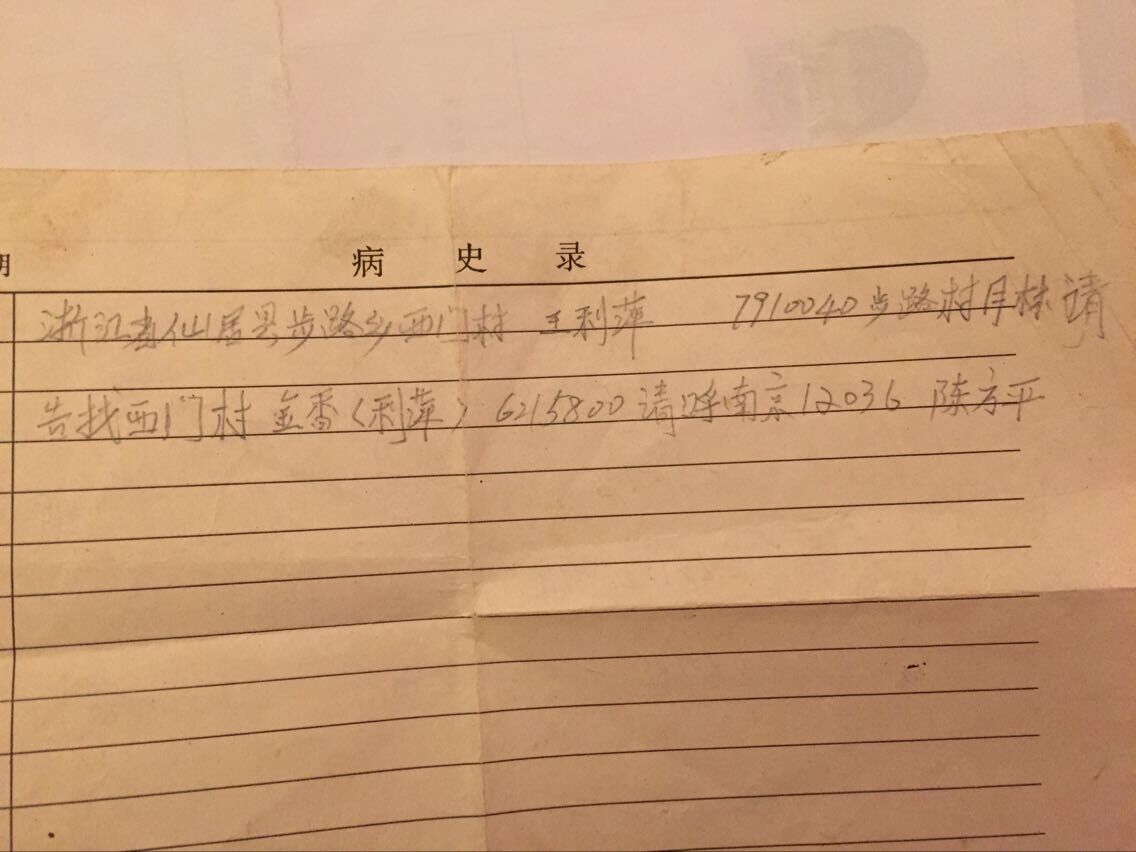 病史录
浙江省仙居县步路乡西门村 王利萍 7910040步路村月林请
告找西门村 金香(利萍) 6215800请呼南京12036 陈方平